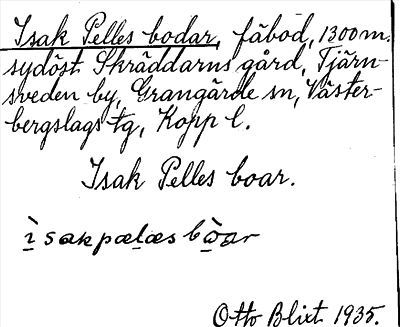 Isak Pelles bodar, fäbod, 1300 m.
sydöst Skräddarns gård, Tjärn-
sveden by, Grangärde sn, Väster-
bergslags tg, Kopp l.
Isak Pelles boar.
ì̱sakpæḻæs bò̱ar
Otto Blixt 1935.